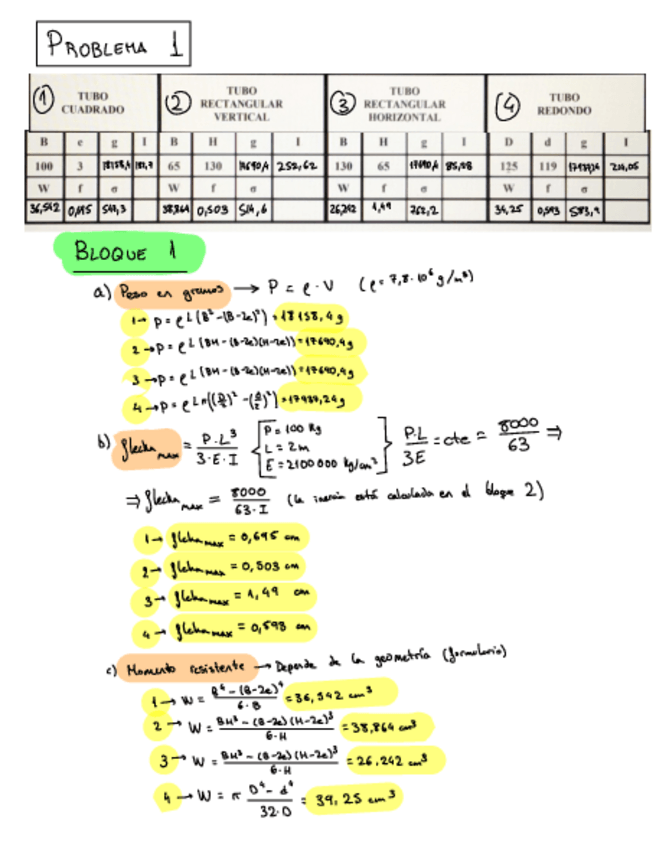 PROBLEMA 1
① TUBO CUADRADO ② TUBO RECTANGULAR VERTICAL ③ TUBO RECTANGULAR HORIZONTAL ④ TUBO REDONDO
B e g I B H g I B H g I D d g I
100 3 18158,4 65 130 252,62 130 65 85,28 125 119
W f σ W f σ W f σ W f σ
36,542 38,864 0,503 514,6 26,242 1,49 762,2
BLOQUE 1
a) Peso en gramos → P = ρ · V (ρ = 7,8·10⁶ g/m³)
1 → P = ρ L (B² - (B-2e)²) = 18158,4 g
2 → P = ρ L (BH - (B-2e)(H-2e)) = 17690,4 g
3 → P = ρ L (BH - (B-2e)(H-2e)) = 17690,4 g
4 → P = ρ L π ((D/2)² - (d/2)²) = 17937,24 g
b) flecha max = P·L³ / 3·E·I [P = 100 Kg L = 2 m E = 2100000 kg/cm²] P·L / 3E = cte = 8000 / 63 ⇒
⇒ flecha max = 8000 / 63·I (la inercia está calculada en el bloque 2)
1 → flecha max = 0,695 cm
2 → flecha max = 0,503 cm
3 → flecha max = 1,49 cm
4 → flecha max = 0,593 cm
c) Momento resistente → Depende de la geometría (formulario)
1 → W = B⁴ - (B-2e)⁴ / 6·B = 36,542 cm³
2 → W = BH³ - (B-2e)(H-2e)³ / 6·H = 38,864 cm³
3 → W = BH³ - (B-2e)(H-2e)³ / 6·H = 26,242 cm³
4 → W = π D⁴ - d⁴ / 32·D = 39,25 cm³